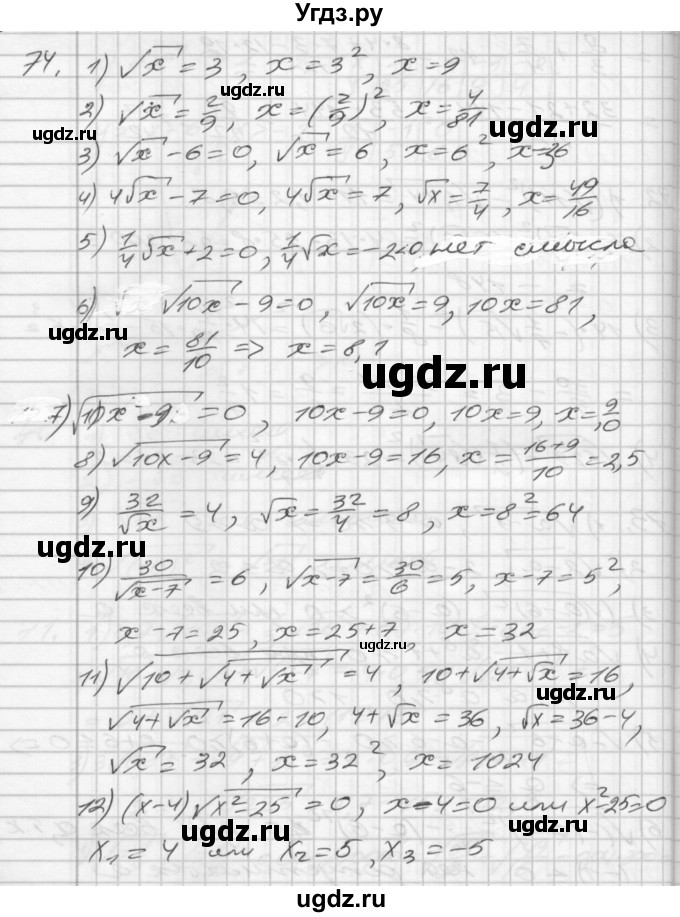 Угдз.ру
74. 1) √x = 3, x = 3², x = 9
2) √x = 2/9, x = (2/9)², x = 4/81
3) √x - 6 = 0, √x = 6, x = 6², x = 36
4) 4√x - 7 = 0, 4√x = 7, √x = 7/4, x = 49/16
5) 1/4 √x + 2 = 0, 1/4 √x = -2 < 0 нет смысла
6) √10x - 9 = 0, √10x = 9, 10x = 81,
x = 81/10 => x = 8,1
7) √(10x - 9) = 0, 10x - 9 = 0, 10x = 9, x = 9/10
8) √(10x - 9) = 4, 10x - 9 = 16, x = (16+9)/10 = 2,5
9) 32/√x = 4, √x = 32/4 = 8, x = 8² = 64
10) 30/√(x-7) = 6, √(x-7) = 30/6 = 5, x - 7 = 5²,
x - 7 = 25, x = 25 + 7, x = 32
11) √(10 + √(4 + √x)) = 4, 10 + √(4 + √x) = 16,
√(4 + √x) = 16 - 10, 4 + √x = 36, √x = 36 - 4,
√x = 32, x = 32², x = 1024
12) (x - 4)√(x² - 25) = 0, x - 4 = 0 или x² - 25 = 0
x₁ = 4 или x₂ = 5, x₃ = -5
ugdz.ru
ugdz.ru
ugdz.ru
ugdz.ru
ugdz.ru
ugdz.ru
ugdz.ru
ugdz.ru
ugdz.ru
ugdz.ru
ugdz.ru
ugdz.ru
ugdz.ru
ugdz.ru